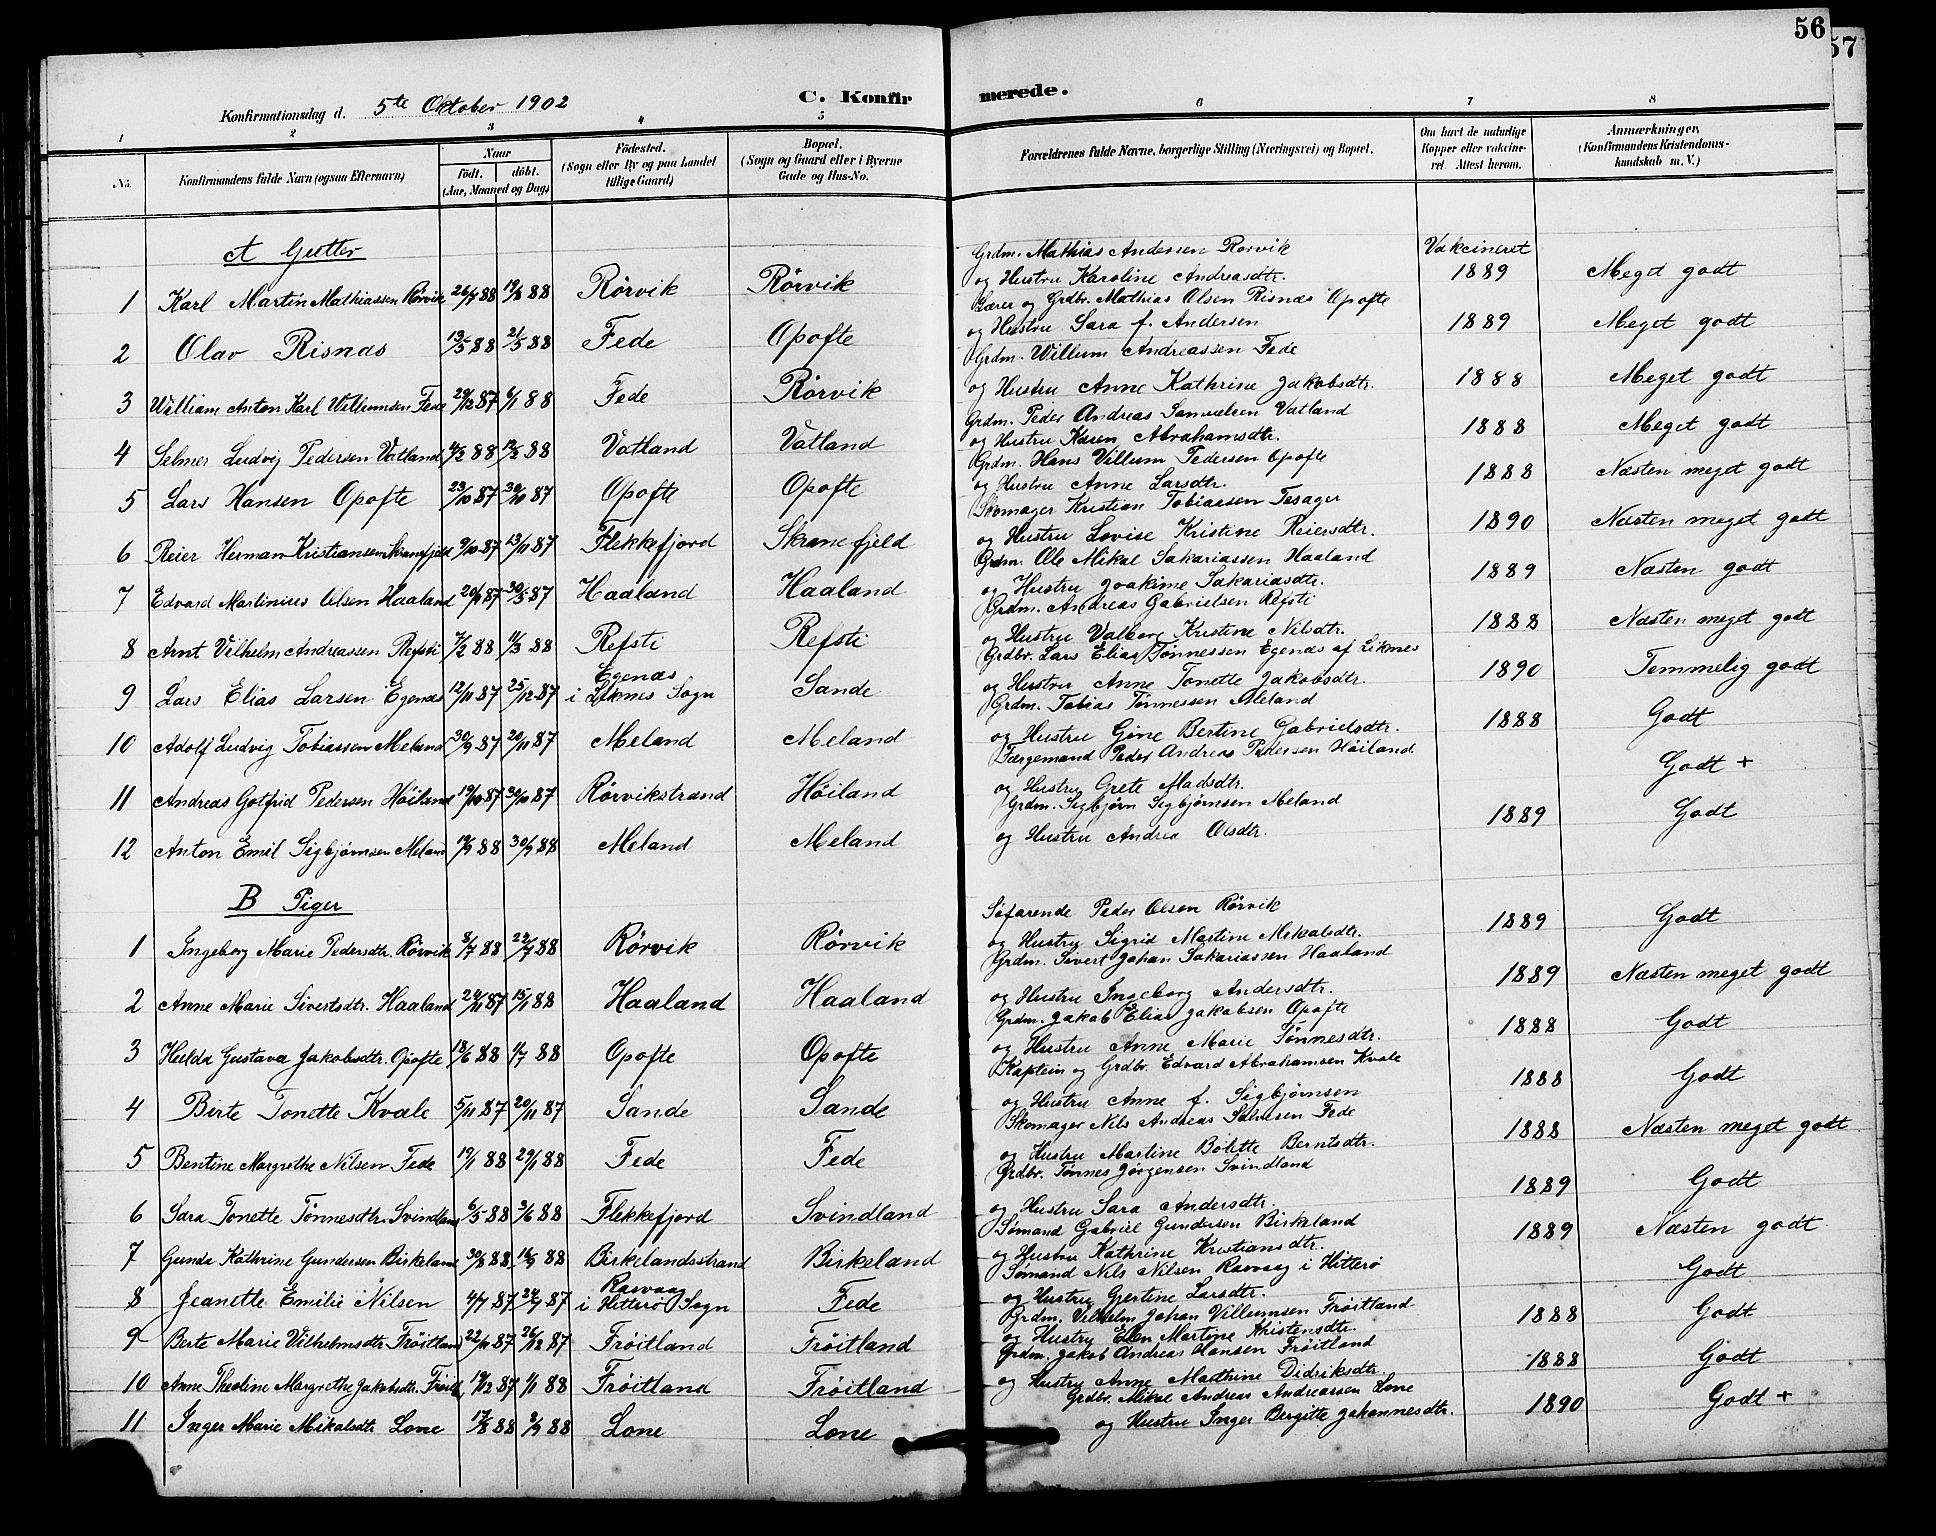 56
57
Konfirmationsdag d. 5te Oktober 1902 C. Konfirmerede.
1 2 3 4 5 6 7 8
No. Konfirmandens fulde Navn (ogsaa Efternavn) Naar født. døbt. (Aar, Maaned og Dag) Fødested. (Sogn eller By og paa Landet tillige Gaard) Bopæl. (Sogn og Gaard eller i Byerne Gade og Hus-No. Forældrenes fulde Navne, borgerlige Stilling (Næringsvei) og Bopæl. Om havt de naturlige Kopper eller vakcineret. Attest herom. Anmærkninger (Konfirmandens Kristendomskundskab m. V.)
A Gutter
Grdm. Mathias Andersen Rørvik Vakcineret
1 Karl Martin Mathiassen Rørvik 26/7 88 19/8 88 Rörvik Rörvik og Hustru Karoline Andreasdtr. 1889 Meget godt
Lærer og Grdbr. Mathias Olsen Risnæs Opofte
2 Olav Risnæs 13/5 88 21/5 88 Fede Opofte og Hustru Sara f. Andersen 1889 Meget godt
Grdm. Willum Andreassen Fede
3 William Anton Karl Willumsen Fede 29/12 87 6/1 88 Fede Rörvik og Hustru Anne Kathrine Jakobsdtr. 1888 Meget godt
Grdm. Peder Andreas Samuelsen Vatland
4 Selmer Ludvig Pedersen Vatland 4/2 88 12/2 88 Vatland Vatland og Hustru Karen Abrahamsdtr. 1888 Meget godt
Grdm. Hans Villum Pedersen Opofte
5 Lars Hansen Opofte 23/10 87 30/10 87 Opofte Opofte og Hustru Anne Larsdtr. 1888 Næsten meget godt
Skomager Kristian Tobiassen Tesager
6 Reier Herman Kristiansen Skranefjeld 9/10 87 13/11 87 Flekkefjord Skranefjeld og Hustru Lovise Kristine Reiersdtr. 1890 Næsten meget godt
Grdm. Ole Mikal Sakariassen Haaland
7 Edvard Martinius Olsen Haaland 20/4 87 30/5 87 Haaland Haaland og Hustru Joakime Sakariasdtr. 1889 Næsten godt
Grdm. Andreas Gabrielsen Refsti
8 Arnt Vilhelm Andreassen Refsti 7/2 88 11/3 88 Refsti Refsti og Hustru Valborg Kristine Nilsdtr. 1888 Næsten meget godt
Grdbr. Lars Elias Tønnessen Egenæs af Liknes
9 Lars Elias Larsen Egenæs 12/11 87 25/12 87 Egenæs i Liknes Sogn Sande og Hustru Anne Tonette Jakobsdtr. 1890 Temmelig godt
Grdm. Tobias Tønnessen Meland
10 Adolf Ludvig Tobiassen Meland 30/9 87 20/11 87 Meland Meland og Hustru Gine Bertine Gabrielsdtr. 1888 Godt
Færgemand Peder Andreas Pedersen Høiland
11 Andreas Gotfrid Pedersen Höiland 19/10 87 30/10 87 Rörvikstrand Höiland og Hustru Grete Madsdtr. Godt +
Grdm. Sigbjørn Sigbjørnsen Meland
12 Anton Emil Sigbjørnsen Meland 19/9 88 30/9 88 Meland Meland og Hustru Andrea Olsdtr. 1889 Godt
B Piger
Søfarende Peder Olsen Rørvik
1 Ingeborg Marie Pedersdtr. Rørvik 8/7 88 22/7 88 Rörvik Rörvik og Hustru Sigrid Martine Mikalsdtr. 1889 Godt
Grdm. Sivert Johan Sakariassen Haaland
2 Anne Marie Sivertsdtr. Haaland 24/11 87 15/1 88 Haaland Haaland og Hustru Ingeborg Andersdtr. 1889 Næsten meget godt
Grdm. Jakob Elias Jakobsen Opofte
3 Hulda Gustava Jakobsdtr. Opofte 18/6 88 1/7 88 Opofte Opofte og Hustru Anne Marie Tønnesdtr. 1888 Godt
Kaptein og Grdbr. Edvard Abrahamsen Kvale
4 Birte Tonette Kvale 5/11 87 20/11 87 Sande Sande og Hustru Anne f. Sigbjørnsen 1888 Godt
Skomager Nils Andreas Salvesen Fede
5 Bentine Margrethe Nilsen Fede 19/1 88 29/1 88 Fede Fede og Hustru Martine Bolette Berntsdtr. 1888 Næsten meget godt
Grdbr. Tønnes Jørgensen Svindland
6 Sara Tonette Tönnesdtr. Svindland 6/5 88 3/6 88 Flekkefjord Svindland og Hustru Sara Andersdtr. 1889 Godt
Sømand Gabriel Gundersen Birkeland
7 Gunda Kathrine Gundersen Birkeland 30/8 88 16/9 88 Birkelandsstrand Birkeland og Hustru Kathrine Kristiansdtr. 1889 Næsten godt
Sømand Nils Nilsen Rasvaag i Hitterø
8 Jeanette Emilie Nilsen 4/7 87 24/7 87 Rasvaag i Hitterø Sogn Fede og Hustru Gertine Larsdtr. Godt
Grdm. Vilhelm Johan Villumsen Frøitland
9 Berte Marie Vilhelmsdtr Fröitland 22/11 87 26/12 87 Fröitland Fröitland og Hustru Elen Martine Kristensdtr. 1888 Godt
Grdm. Jakob Andreas Hansen Frøitland
10 Anne Theoline Margrethe Jakobsdtr. Fröitl 19/12 87 1/1 88 Fröitland Fröitland og Hustru Anne Marthine Didriksdtr. 1888 Godt
Grdbr. Mikal Andreas Andreassen Lone
11 Inger Marie Mikalsdtr Lone 17/8 88 2/9 88 Lone Lone og Hustru Inger Bergitte Johannesdtr. 1890 Godt +